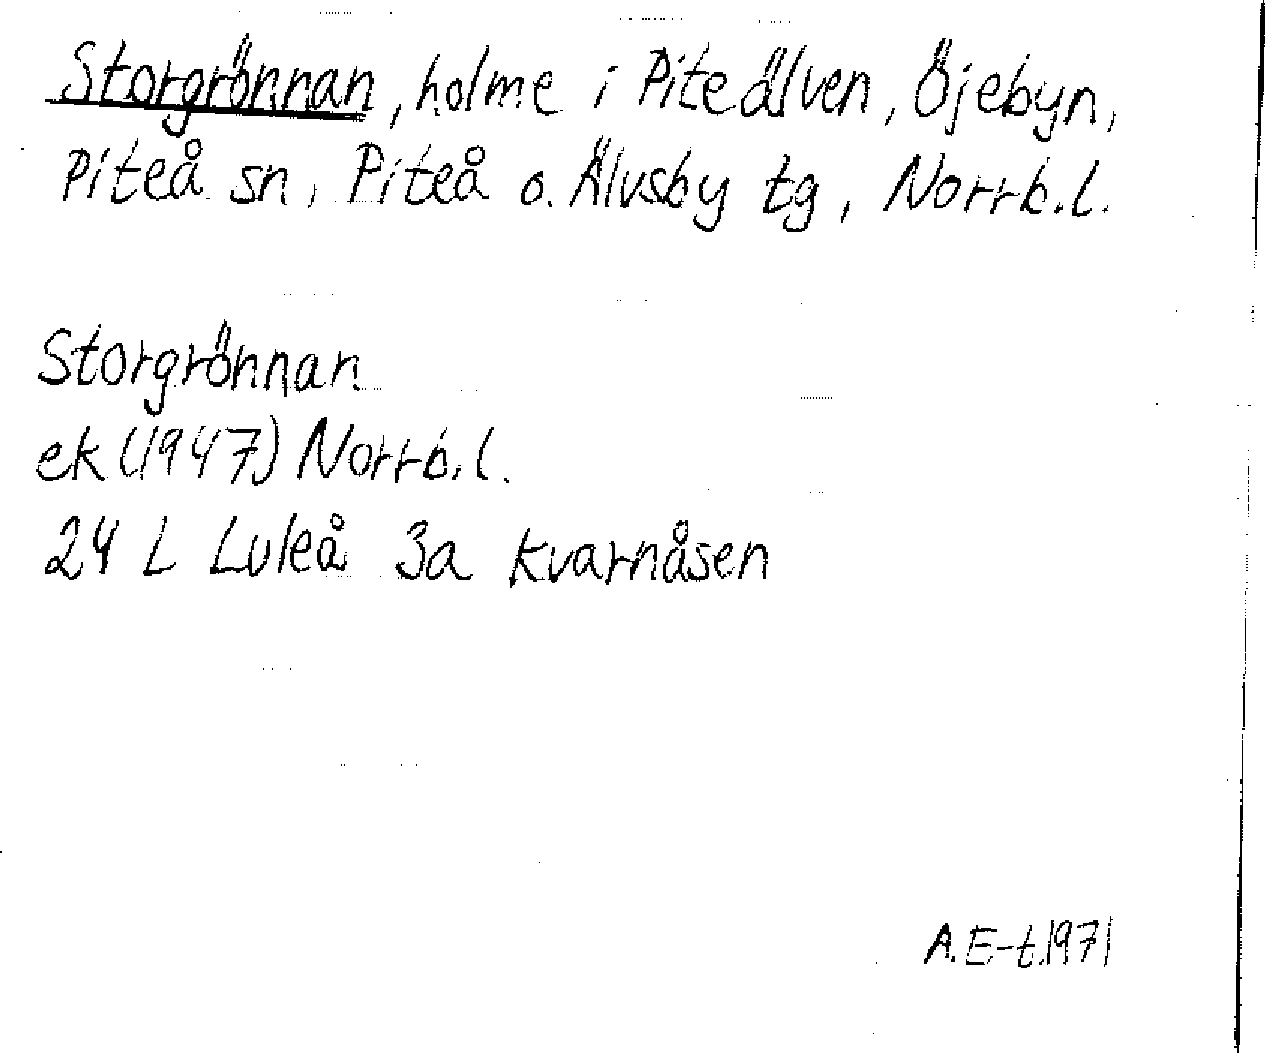 Storgrönnan, holme i Piteälven, Öjebyn,
Piteå sn, Piteå o. Älvsby tg, Norrb.l.
Storgrönnan
ek (1947) Norrb.l.
24 L Luleå 3a Kvarnåsen
A.E-t.1971